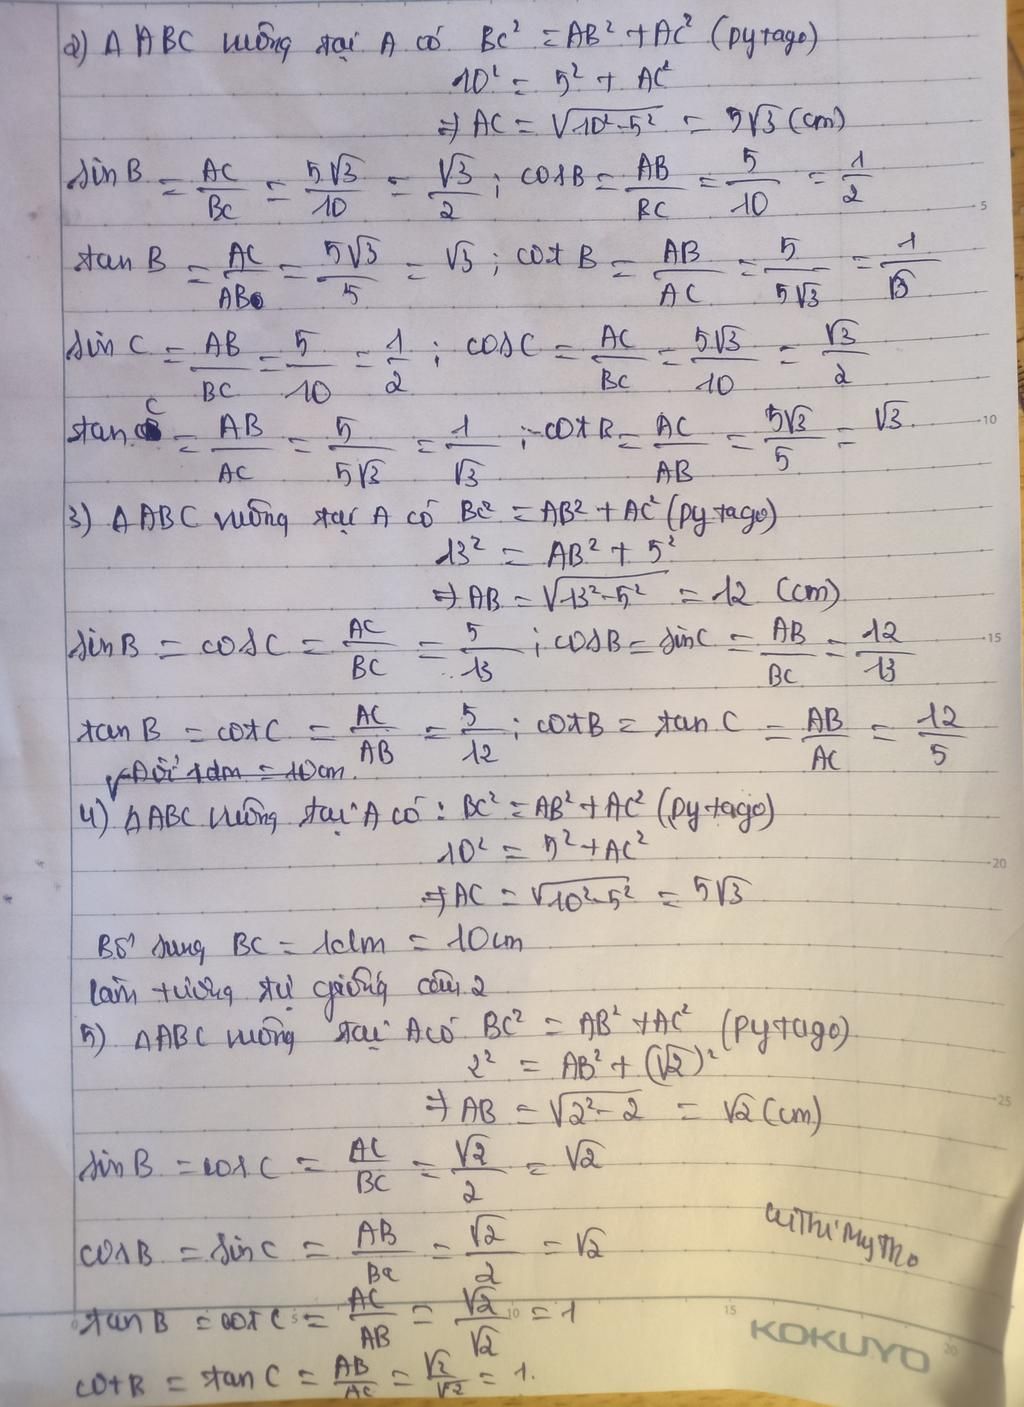 2) Δ ABC vuông tại A có BC² = AB² + AC² (pytago)
10² = 5² + AC²
⇒ AC = √(10²-5²) = 5√3 (cm)
sin B = AC/BC = 5√3/10 = √3/2 ; cosB = AB/BC = 5/10 = 1/2
tan B = AC/AB = 5√3/5 = √3 ; cot B = AB/AC = 5/5√3 = 1/√3
sin C = AB/BC = 5/10 = 1/2 ; cosC = AC/BC = 5√3/10 = √3/2
tan C = AB/AC = 5/5√3 = 1/√3 ; cotB = AC/AB = 5√3/5 = √3
3) Δ ABC vuông tại A có BC² = AB² + AC² (pytago)
13² = AB² + 5²
⇒ AB = √(13²-5²) = 12 (cm)
sinB = cosC = AC/BC = 5/13 ; cosB = sinC = AB/BC = 12/13
tan B = cotC = AC/AB = 5/12 ; cotB = tan C = AB/AC = 12/5
Đổi 1dm = 10cm.
4) ΔABC vuông tại A có : BC² = AB² + AC² (pytago)
10² = 5² + AC²
⇒ AC = √(10²-5²) = 5√3
Bổ sung BC = 1dm = 10cm
làm tương tự giống câu 2
5) ΔABC vuông tại A có BC² = AB² + AC² (pytago)
2² = AB² + (√2)²
⇒ AB = √(2²-2) = √2 (cm)
sin B = cos C = AC/BC = √2/2 = √2
cosB = sin C = AB/BC = √2/2 = √2
tan B = cot C = AC/AB = √2/√2 = 1
cotB = tan C = AB/AC = √2/√2 = 1.
5
10
15
20
25
5
10
15
20
KOKUYO